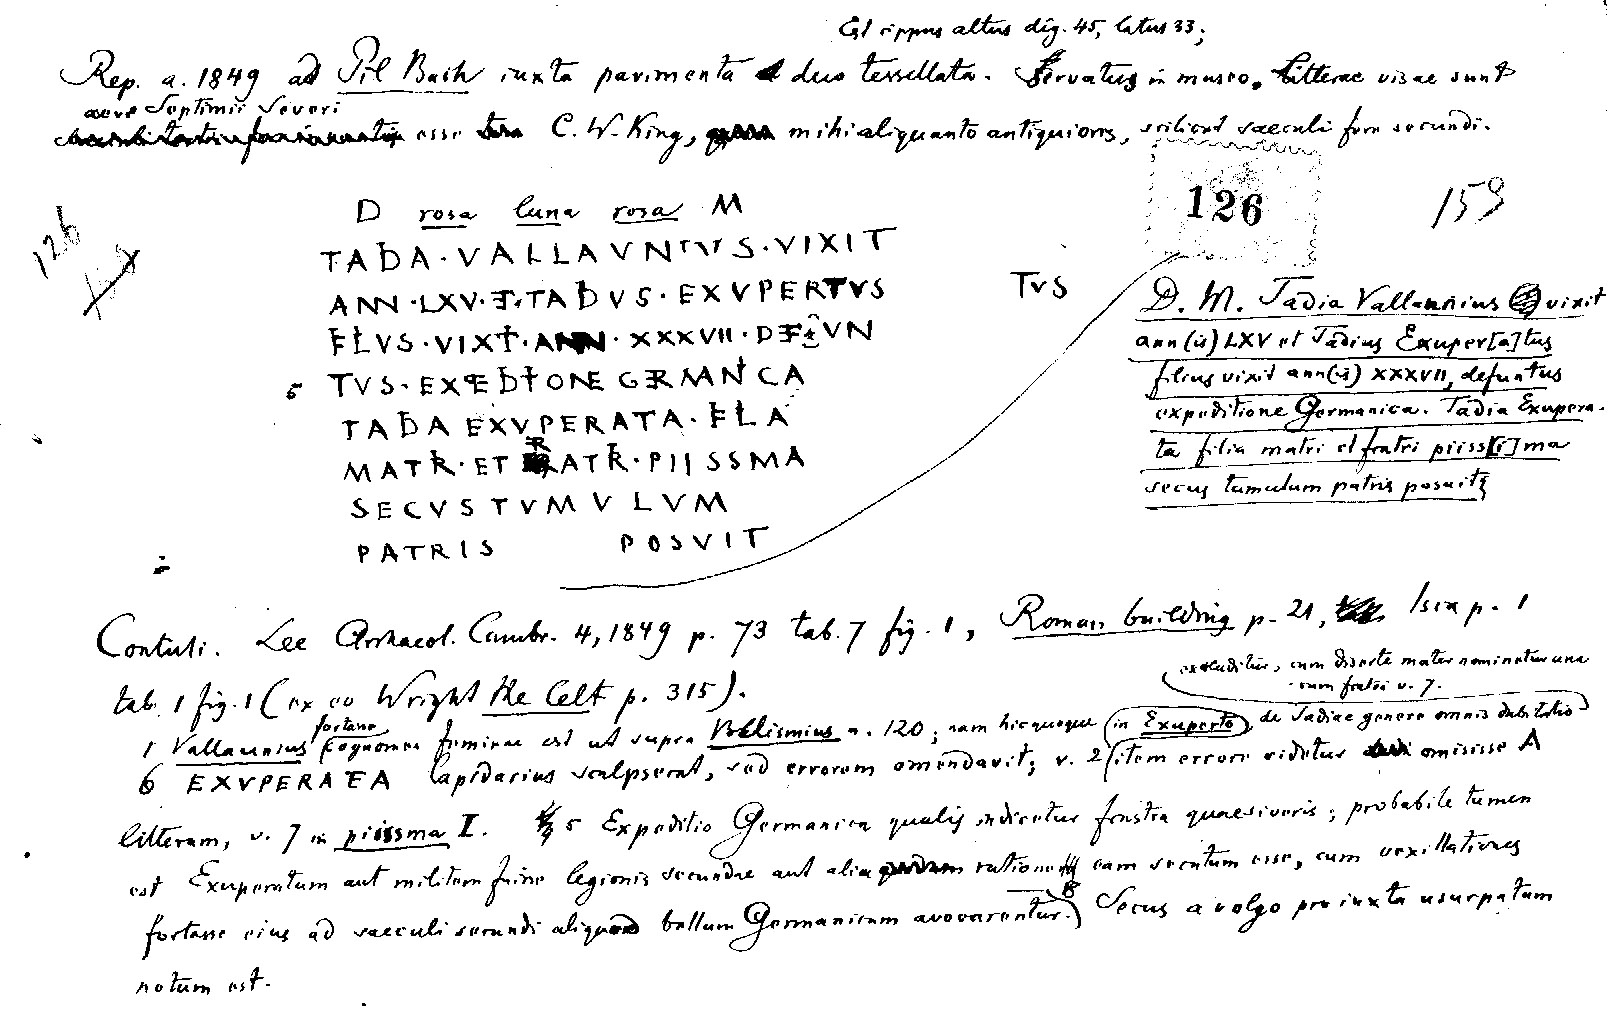 Est cippus altus dig. 45, latus 33;
Rep. a. 1849 ad Pil Bach iuxta pavimenta duo tessellata. Servatus in museo. Litterae visae sunt
aevo Septimii Severi
esse C. W. King, mihi aliquanto antiquiores, scilicet saeculi fere secundi.
126
159
126
D rosa luna rosa M
TADIA · VALLAVNIVS · VIXIT
ANN · LXV · ET · TADIVS · EXVPERTVS
TVS
FILIVS · VIXIT · ANN · XXXVII · DEFVN
5 TVS · EXPEDITIONE GERMANICA
TADIA EXVPERATA · FILIA
MATRI · ET FRATRI · PIISSMA
SECVS TVMVLVM
PATRIS POSVIT
D. M. Tadia Vallaunius vixit
ann(is) LXV et Tadius Exuper[a]tus
filius vixit ann(is) XXXVII, defuntus
expeditione Germanica. Tadia Exupera-
ta filia matri et fratri piiss[i]ma
secus tumulum patris posuit
Contuli. Lee Archaeol. Cambr. 4, 1849 p. 73 tab. 7 fig. 1, Roman building p. 21, Isca p. 1
tab. 1 fig. 1 (ex eo Wright the Celt p. 315).
excluditur, cum diserte mater nominetur una
cum fratri v. 7.
1 Vallaunius fortasse cognomen feminae est ut supra Vellismius n. 120; nam hic quoque in Exuperto de Tadiae genere omnis dubitatio
6 EXVPERAEA lapidarius sculpserat, sed errorem emendavit; v. 2 item errore videtur omisisse A
litteram, v. 7 in piissma I. 5 Expeditio Germanica qualis indicetur frustra quaesiveris; probabile tamen
est Exuperatum aut militem fuisse legionis secundae aut alia ratione eam secutum esse, cum vexillationes
fortasse eius ad saeculi secundi aliquod bellum Germanicum avocarentur. Secus a volgo pro iuxta usurpatum
notum est.